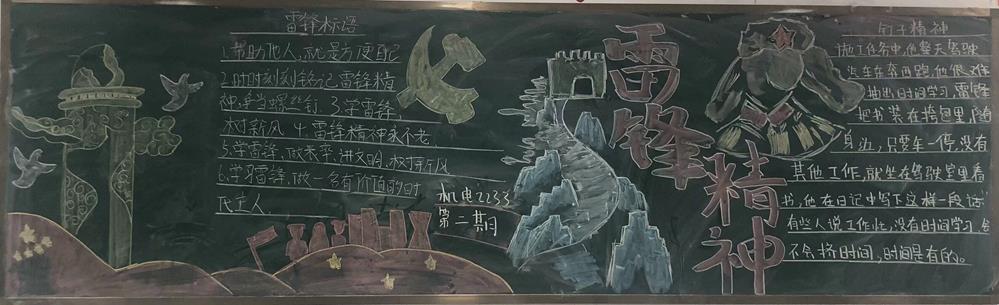 雷锋标语
1.帮助他人,就是方便自己
2.时时刻刻铭记雷锋精
神,争当螺丝钉 3.学雷锋,
树新风 4.雷锋精神永不老
5.学雷锋,做表率,讲文明,树新风
6.学习雷锋,做一名有价值的时
代主人.
机电2233
第二期
雷锋
精神
钉子精神
施工任务中,他整天驾驶
汽车东奔西跑,他很难
抽出时间学习,雷锋
把书装在挎包里,随
身边,只要车一停,没有
其他工作,就坐在驾驶室里看
书,他在日记中写下这样一段话
有些人说工作忙,没有时间学习,会
不会挤时间,时间是有的。